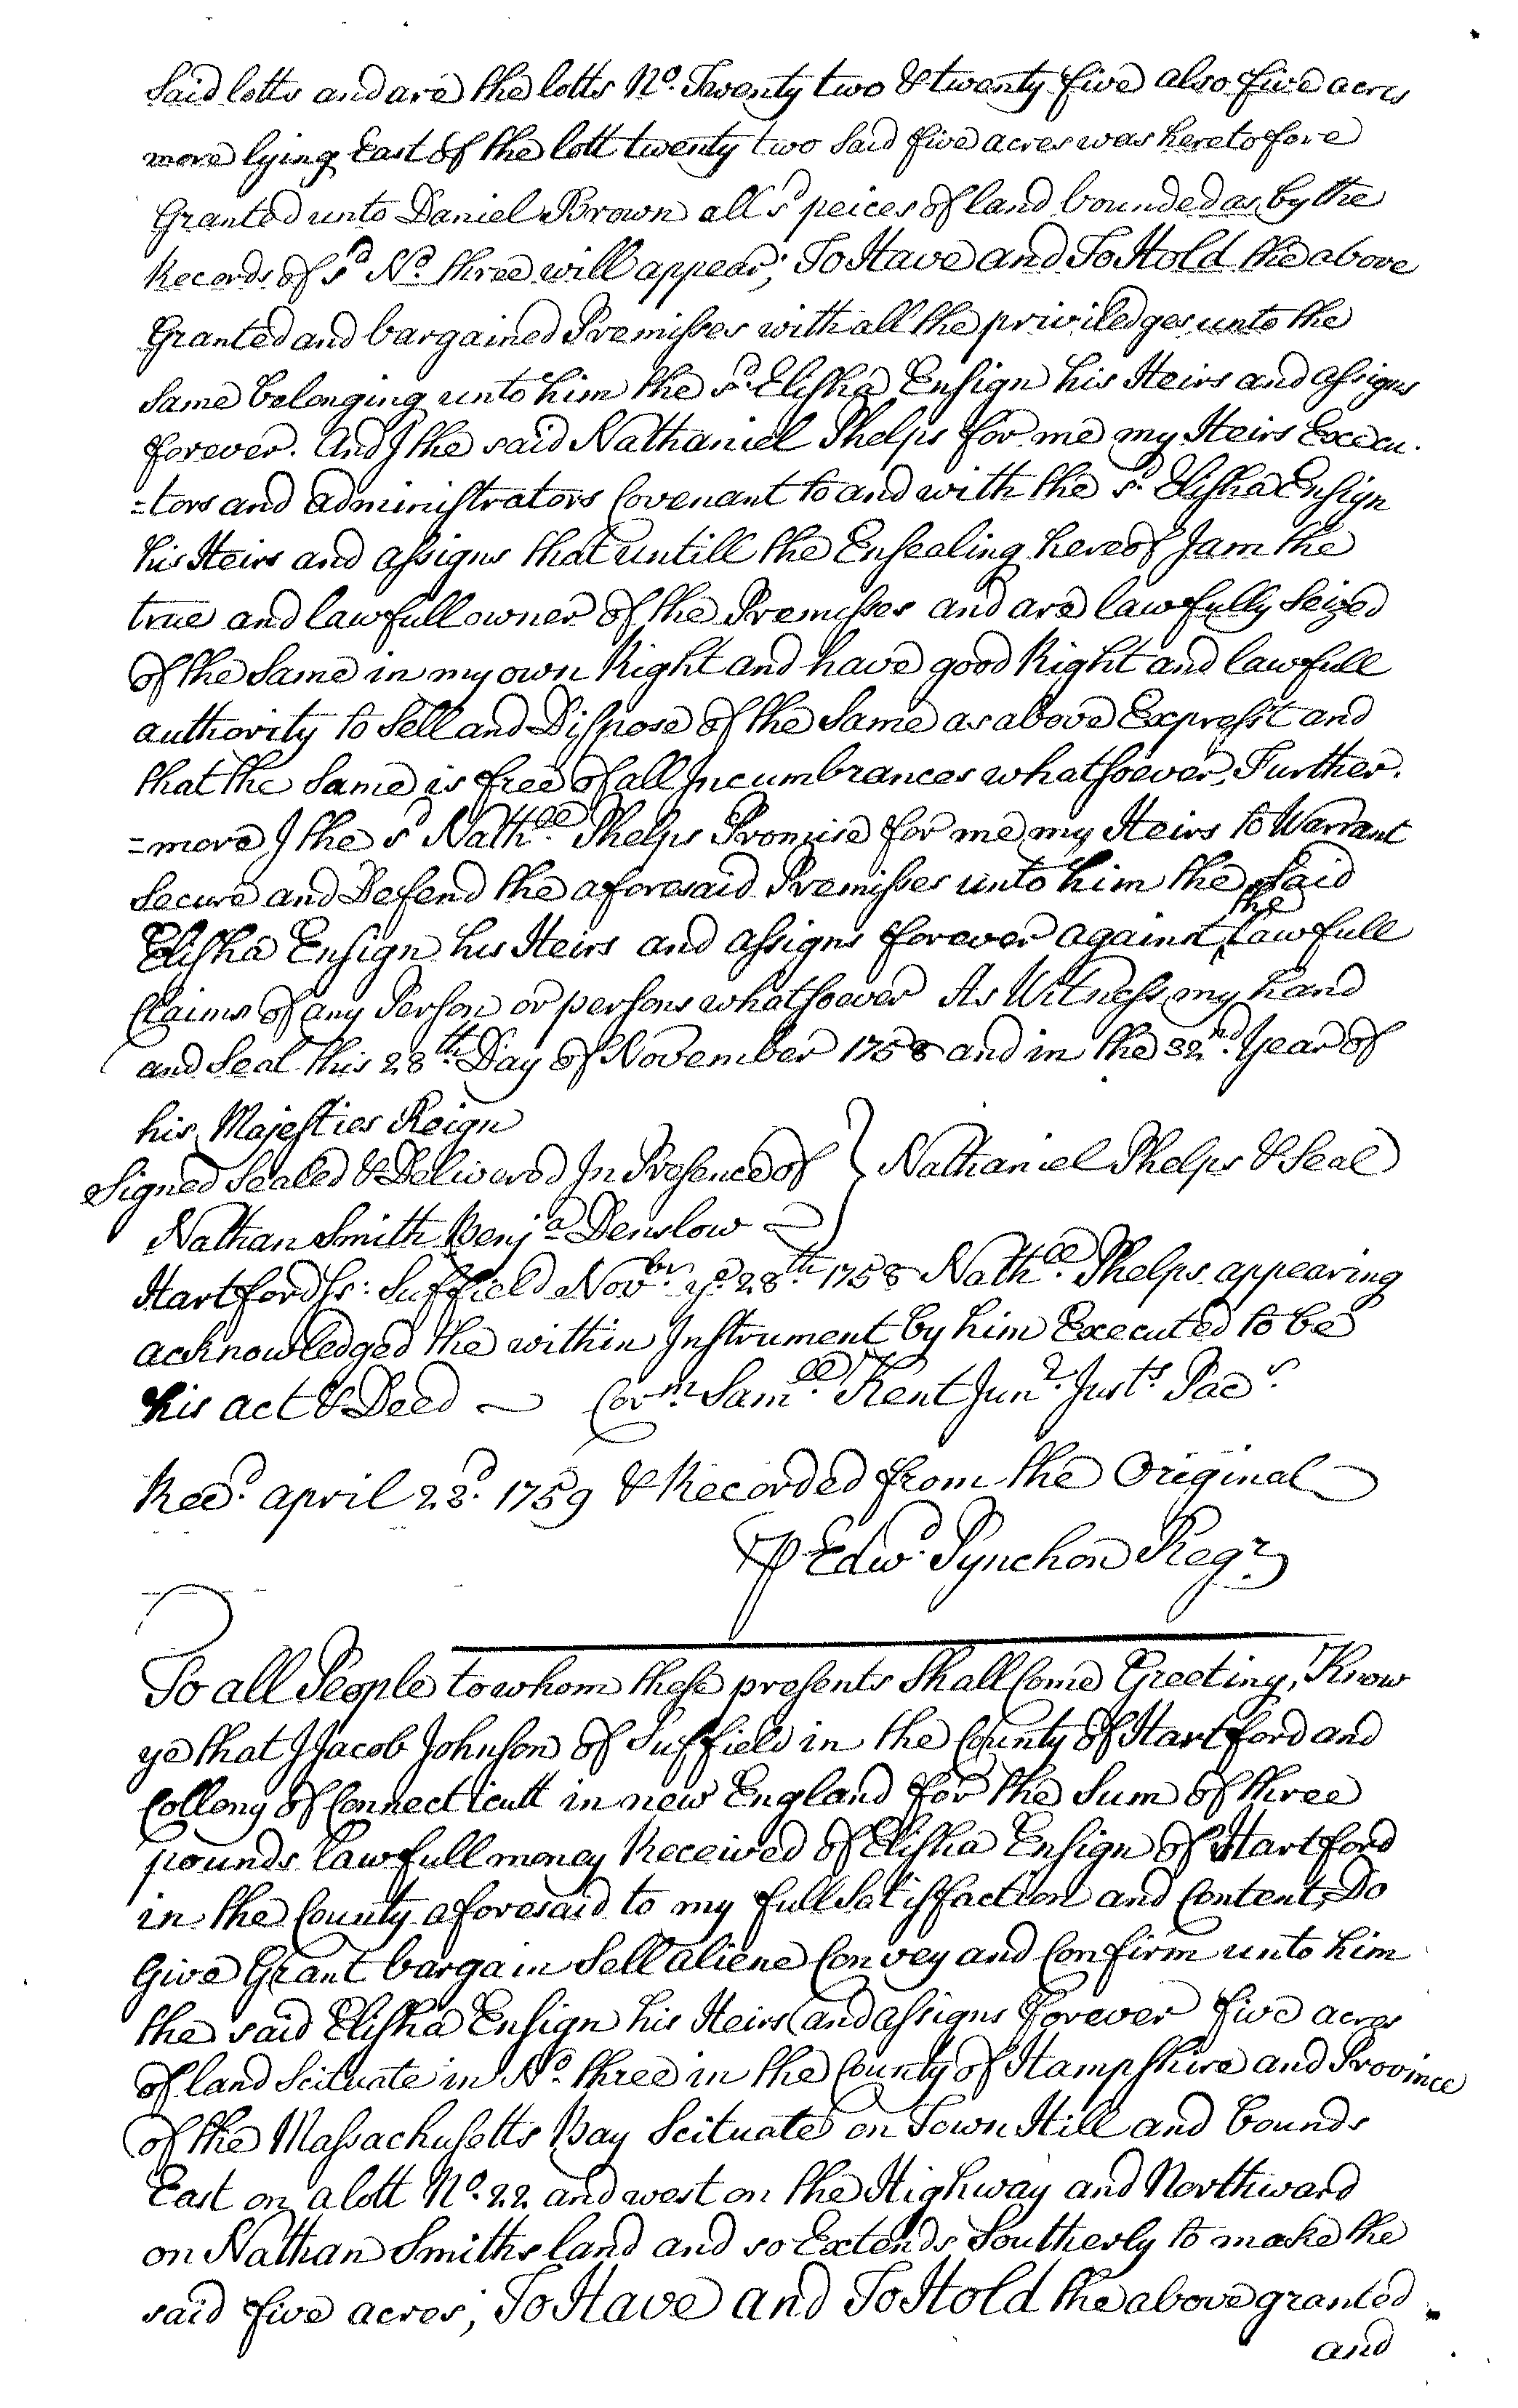 Said lotts and are the lotts No. Twenty two & twenty five also five acres
more lying East of the lott twenty two Said five acres was heretofore
Granted unto Daniel Brown all sd peices of land bounded as by the
Records of sd No. three will appear; To Have and To Hold the above
Granted and bargained Premisses with all the priviledges unto the
Same belonging unto him the sd. Elisha Ensign his Heirs and assigns
forever. And I the said Nathaniel Phelps for me my Heirs Execu-
=tors and administrators Covenant to and with the sd. Elisha Ensign
his Heirs and assigns that untill the Ensealing hereof I am the
true and lawfull owner of the Premisses and are lawfully Seized
of the Same in my own Right and have good Right and lawfull
authority to Sell and Dispose of the Same as above Expresst and
that the Same is free of all Incumbrances whatsoever, Further-
=more I the sd Nathll. Phelps Promise for me my Heirs to Warrant
Secure and Defend the aforesaid Premisses unto him the Said
Elisha Ensign his Heirs and assigns forever against the lawfull
Claims of any Person or persons whatsoever As Witness my hand
and Seal this 28th. Day of November 1758 and in the 32nd. Year of
his Majesties Reign
Signed Sealed & Delivered In Presence of } Nathaniel Phelps & Seal
Nathan Smith Benja. Denslow
Hartford ss: Suffield Novbr. ye. 28th 1758 Nathll. Phelps appearing
acknowledged the within Instrument by him Executed to be
his act & Deed — Corm. Samll. Kent Junr. Justs Pacs.
Recd. april 23d. 1759 & Recorded from the Original
P Edwd. Pynchon Regr.
To all People to whom these presents Shall Come Greeting, Know
ye that I Jacob Johnson of Suffield in the County of Hartford and
Collony of Connecticutt in new England for the Sum of three
pounds lawfull money Received of Elisha Ensign of Hartford
in the County aforesaid to my full Satisffaction and Content, Do
Give Grant bargain Sell aliene Convey and Confirm unto him
the said Elisha Ensign his Heirs and assigns Forever five acres
of land Scituate in No. three in the County of Hampshire and Province
of the Massachusetts Bay Scituate on Town Hill and bounds
East on a lott No. 22 and west on the Highway and Northward
on Nathan Smiths land and so Extends Southerly to make the
said five acres; To Have and To Hold the above granted
and